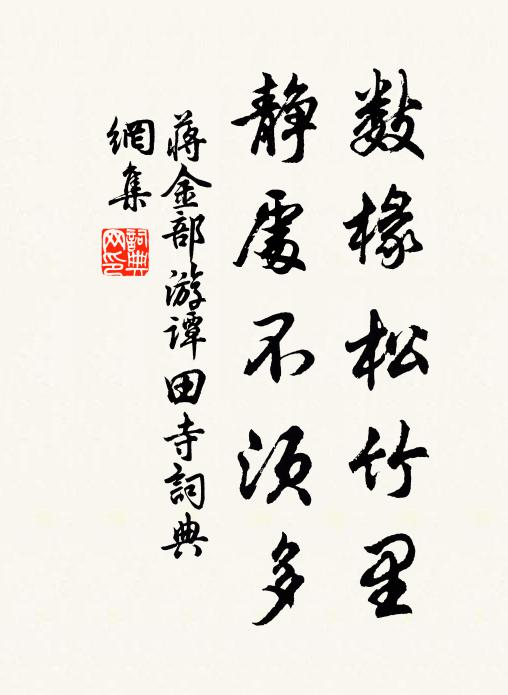 数椽松竹里
静處不须多
蒋金部游谭田寺詞典
網集
詞典网印